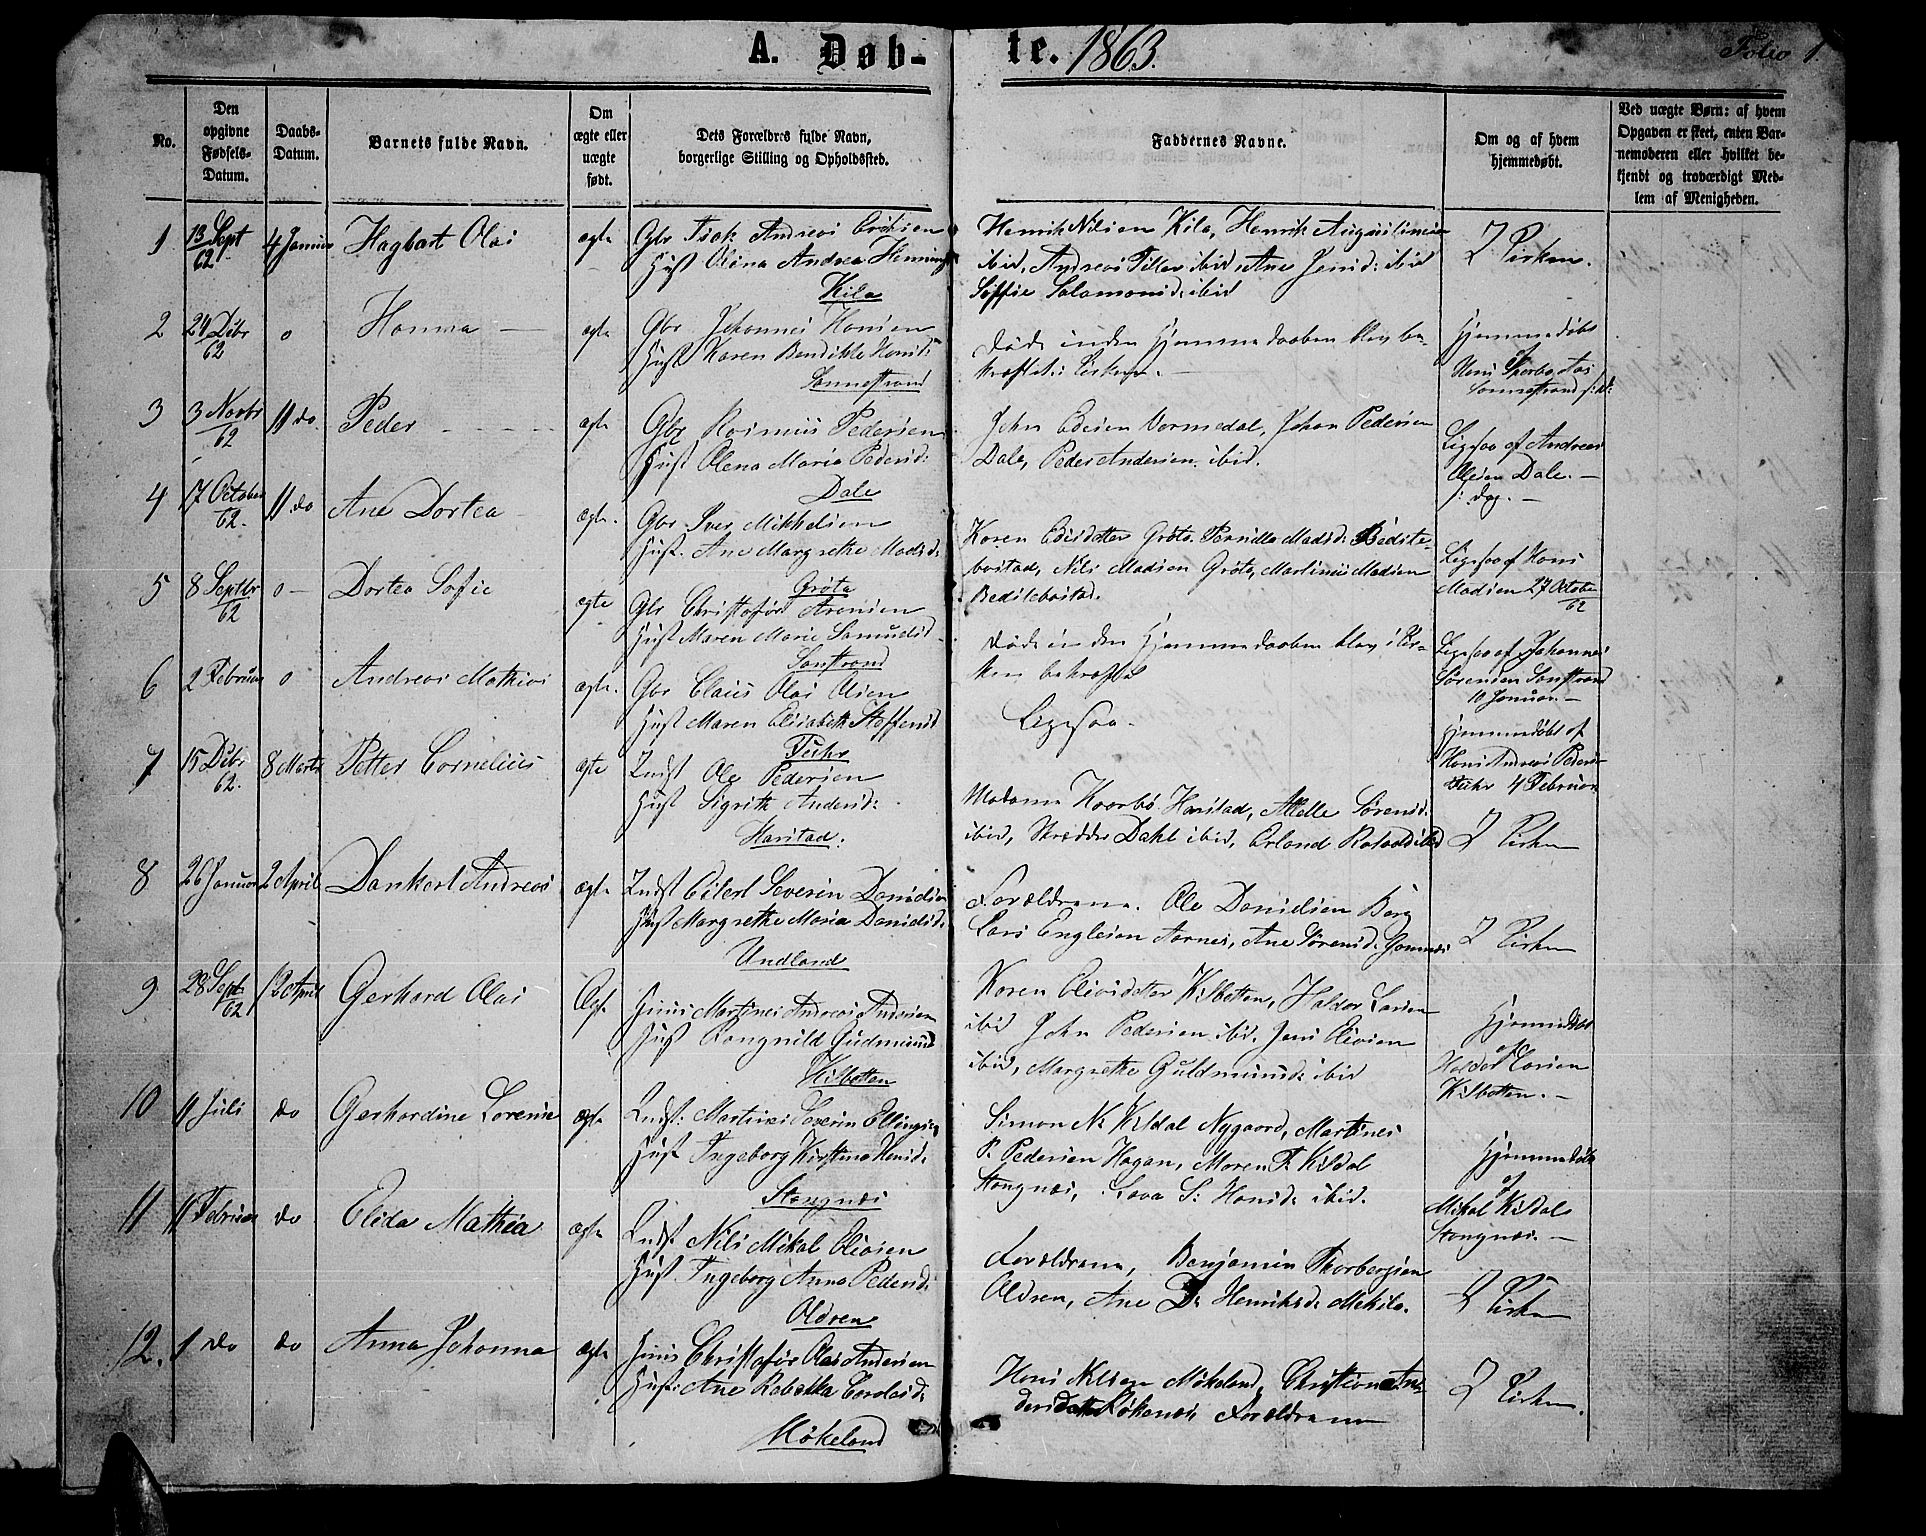 A. Døb-te. 1863.
Folio 1.
No.
Den opgivne Fødsels-Datum.
Daabs-Datum.
Barnets fulde Navn.
Om ægte eller uægte født.
Dets Forældres fulde Navn, borgerlige Stilling og Opholdssted.
Faddernes Navne.
Om og af hvem hjemmedøbt.
Ved uægte Børn: af hvem Opgaven er skeet, enten Barnemoderen eller hvilket bekjendt og troværdigt Medlem af Menigheden.
1 13 Sept 62 4 Januar Hagbart Olai ægte
Gbr Isak Andreas Eriksen
Hust Olina Andrea Henningsd
Kila
Henrik Nilsen Kila, Henrik Augustinusen
ibid, Andreas ibid, Ane Jensd: ibid
Soffie Salamonsd: ibid
I Kirken.
2 24 Debr 62 o Hanna — ægte
Gbr Johannes Hansen
Hust Karen Bendikte Hansd:
Sannestrand
Døde inden Hjemmedaaben blev be-
kræftet i Kirken. —
Hjemmedøbt
af
3 3 Novbr 62 11 do. Peder — ægte
Gbr Rasmus Pedersen
Hust Olena Maria Pedersd:
Dale
John Vormedal, Johan Pedersen
Dale, Peder Andersen ibid.
Ligesaa af Andreas
Olsen Dale. —
4 17 October 62. 11 do Ane Dortea ægte.
Gbr Iver Mikkelsen
Hust. Ane Margrethe Madsd:
Grøta
Karen Grøta. Pernille Madsd: Bedste-
bostad, Nils Madsen Grøta, Martinus Madsen
Bedstebostad.
Ligesaa af Hans
Madsen 27 October
62
5 8 Septbr 62 o — Dortea Sofie ægte
Gbr Christoffer Arensen
Hust Maren Marie Samuelsd:
Sanstrand
Døde inden Hjemmedaaben blev i Kir-
ken bekræftet
Ligesaa af Johannes
Sørensen Sanstrand
10 Januar. —
6 2 Februar o Andreas Mathias ægte.
Gbr Claus Olai Olsen
Hust Maren Elisabeth Stoffersd
Fuhr
Ligesaa.
Hjemmedøbt af
Hans Andreas Peders-
Fuhr 4 Februar
7 15 Debr 62. 8 Marts Petter Cornelius ægte
Indst Ole Pedersen
Hust Sigrith Andersd:
Harstad.
Madame Kaarbø Harstad, Sørensd:
ibid, Skrædder Dahl ibid, Erland ibid
I Kirken
8 26 Januar 2 April Dankert Andreas ægte
Indst Eilert Severin Danielsen
Hust Margrethe Maria Danielsd:
Undland
Forældrene. Ole Danielsen Berg
Lars Aarnes, Ane Sørensd:
I Kirken
9. 28 Sept 62 12 April Gerhard Olai Ægt.
Huus Martines Andreas Andersen
Hust Rangnild Gudmunds
Kilbotten
Karen Kilbotten, Haldor Larsen
ibid John Pedersen ibid. Jens ibid
ibid, Margrethe Guldmunds: ibid
Hjemmedøbt
af
Haldor Larsen
Kilbotten. —
10 11 Juli do Gerhardine Lorense ægte
Indst: Martines Severin Ellingsen
Hust Ingeborg Kirstina Hansd.
Stangnæs
Simon N. Kildal Nygaard, Martines
P. Pedersen Hagan, Maren P. Kildal
Stangnæs, Lava S: Hansd: ibid.
Hjemmedøbt
af
Mikal Kildal
Stangnæs. —
11 11 Februar do Elida Mathea ægte
Indst Nils Mikal
Hust Ingeborg Anna Pedersd:
Aldren
Forældrene, Benjamin Thorbergsen
Aldren, Ane D: Henriksd: Mekila.
I Kirken
12. 1 do do Anna Johanna ægte
Huus Christoffer Olai Andersen
Hust: Ane Rebekka Carolesd:
Møkeland
Hans Nilsen Møkeland, Christiane An-
dersdatter Røkenæs, Forældrene
I Kirken.